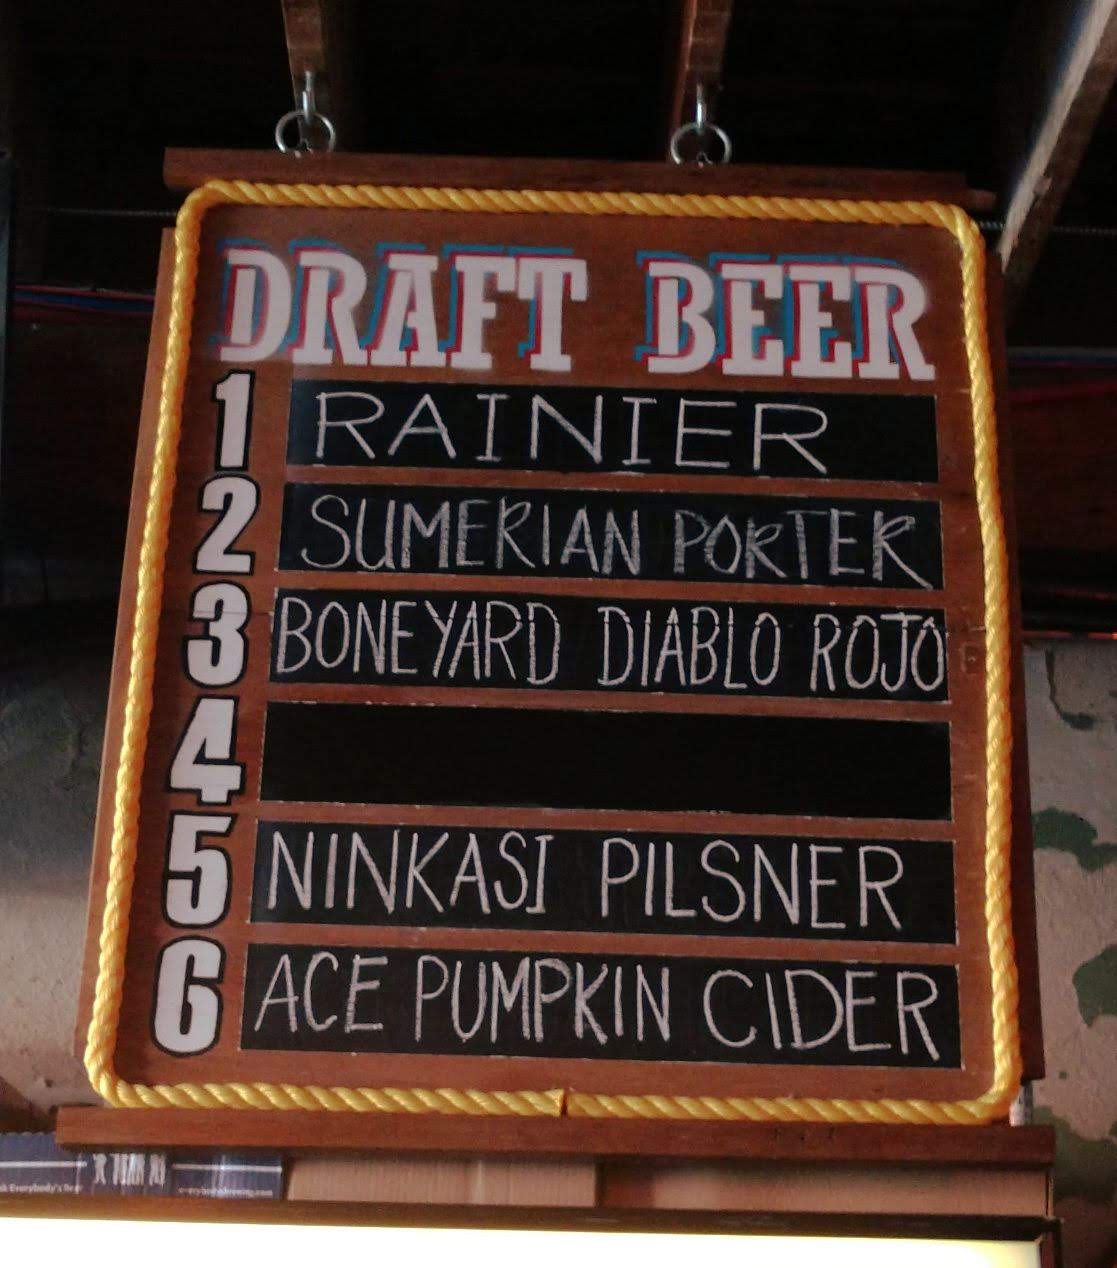 DRAFT BEER
1 RAINIER
2 SUMERIAN PORTER
3 BONEYARD DIABLO ROJO
4
5 NINKASI PILSNER
6 ACE PUMPKIN CIDER
Everybody's